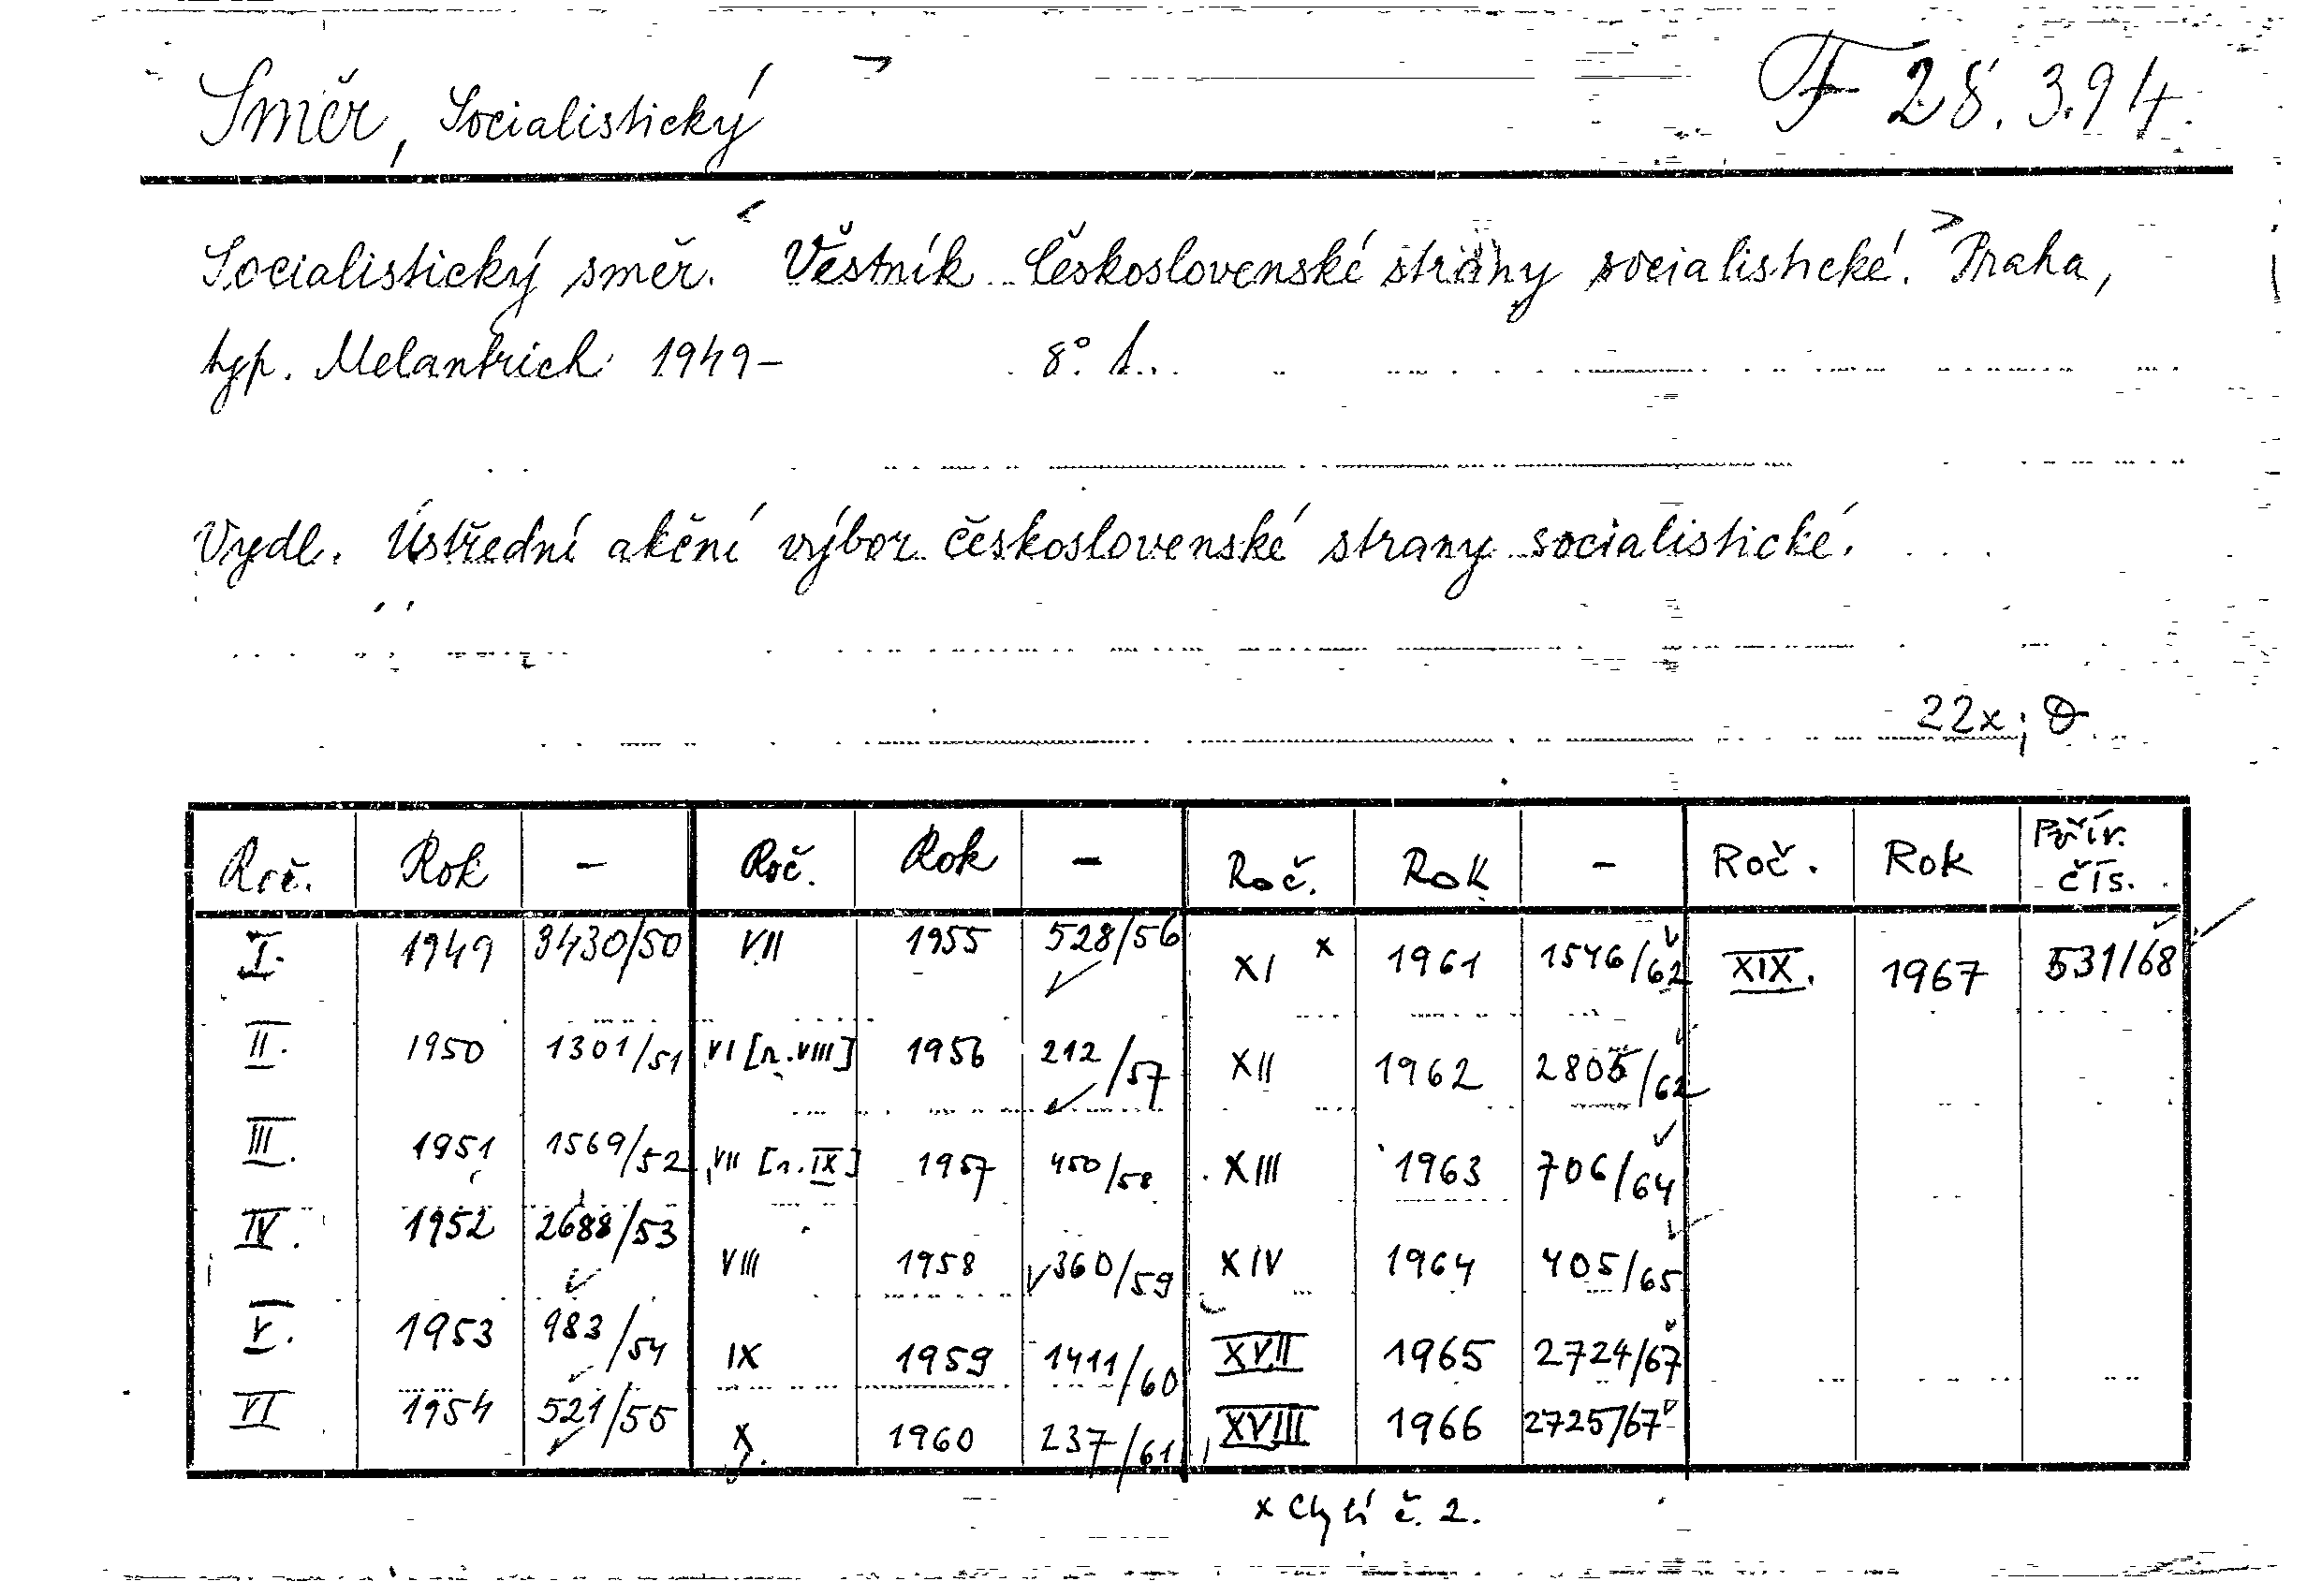 Směr, Socialistický F 28.394.
Socialistický směr. Věstník Československé strany socialistické. Praha,
typ. Melantrich 1949– 8°.
Vydl. Ústřední akční výbor československé strany socialistické.
22x;
Roč. Rok – Roč. Rok – Roč. Rok – Roč. Rok Přír. čís.
I. 1949 3430/50 VII 1955 528/56 XI x 1961 1546/62 XIX. 1967 531/68
II. 1950 1301/51 VI [r. VIII] 1956 212/57 XII 1962 2805/62
III. 1951 1569/52 VII [r. IX] 1957 450/58 XIII 1963 706/64
IV. 1952 2688/53 VIII 1958 360/59 XIV 1964 405/65
V. 1953 983/54 IX 1959 1411/60 XVII 1965 2724/67
VI 1954 521/55 X. 1960 237/61 XVIII 1966 2725/67
x Chybí č. 2.